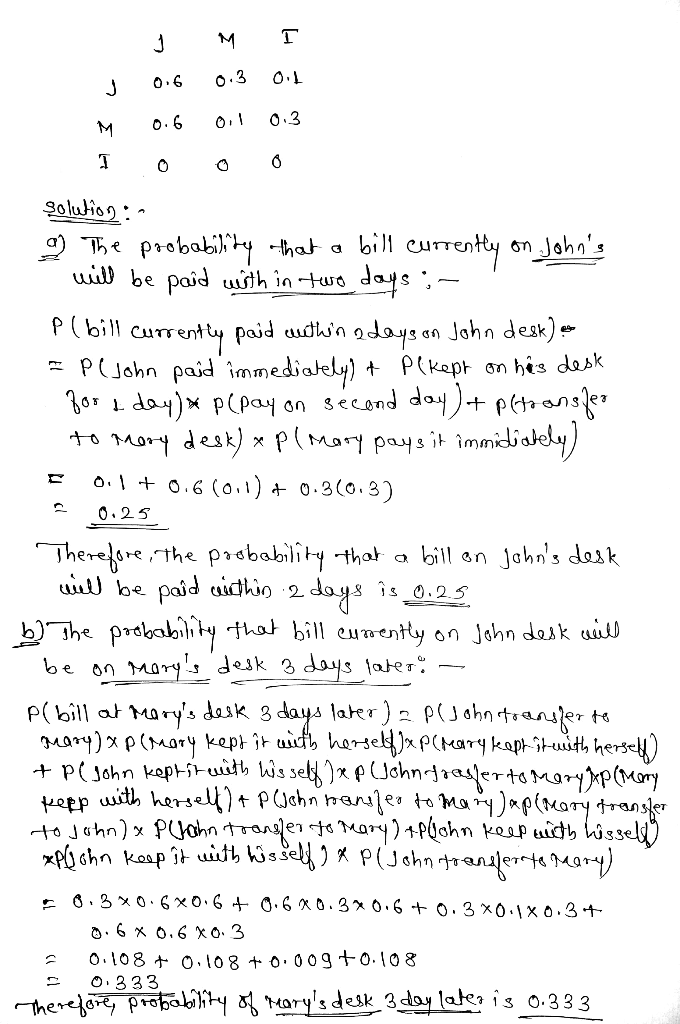 J M I
J 0.6 0.3 0.1
M 0.6 0.1 0.3
I 0 0 0
Solution :-
a) The probability that a bill currently on John's
will be paid with in two days :-
P(bill currently paid within 2days on John desk)
= P(John paid immediately) + P(kept on his desk
for 1 day)* P(pay on second day) + P(transfer
to Mary desk) * P(Mary pays it immidiately)
= 0.1 + 0.6(0.1) + 0.3(0.3)
= 0.25
Therefore, the probability that a bill on John's desk
will be paid within 2 days is 0.25
b) The probability that bill currently on John desk will
be on Mary's desk 3 days later: -
P(bill at Mary's desk 3 days later) = P(John transfer to
Mary) x P(Mary kept it with herself) x P(Mary kept it with herself)
+ P(John kept it with hisself) x P(John trasfer to Mary) x P(Mary
kepp with herself) + P(John transfer to Mary) x P(Mary transfer
to John) x P(John transfer to Mary) + P(John keep with hisself)
x P(John keep it with hisself) x P(John transfer to Mary)
= 0.3 x 0.6 x 0.6 + 0.6 x 0.3 x 0.6 + 0.3 x 0.1 x 0.3 +
0.6 x 0.6 x 0.3
= 0.108 + 0.108 + 0.009 + 0.108
= 0.333
Therefore, probability of Mary's desk 3 day later is 0.333